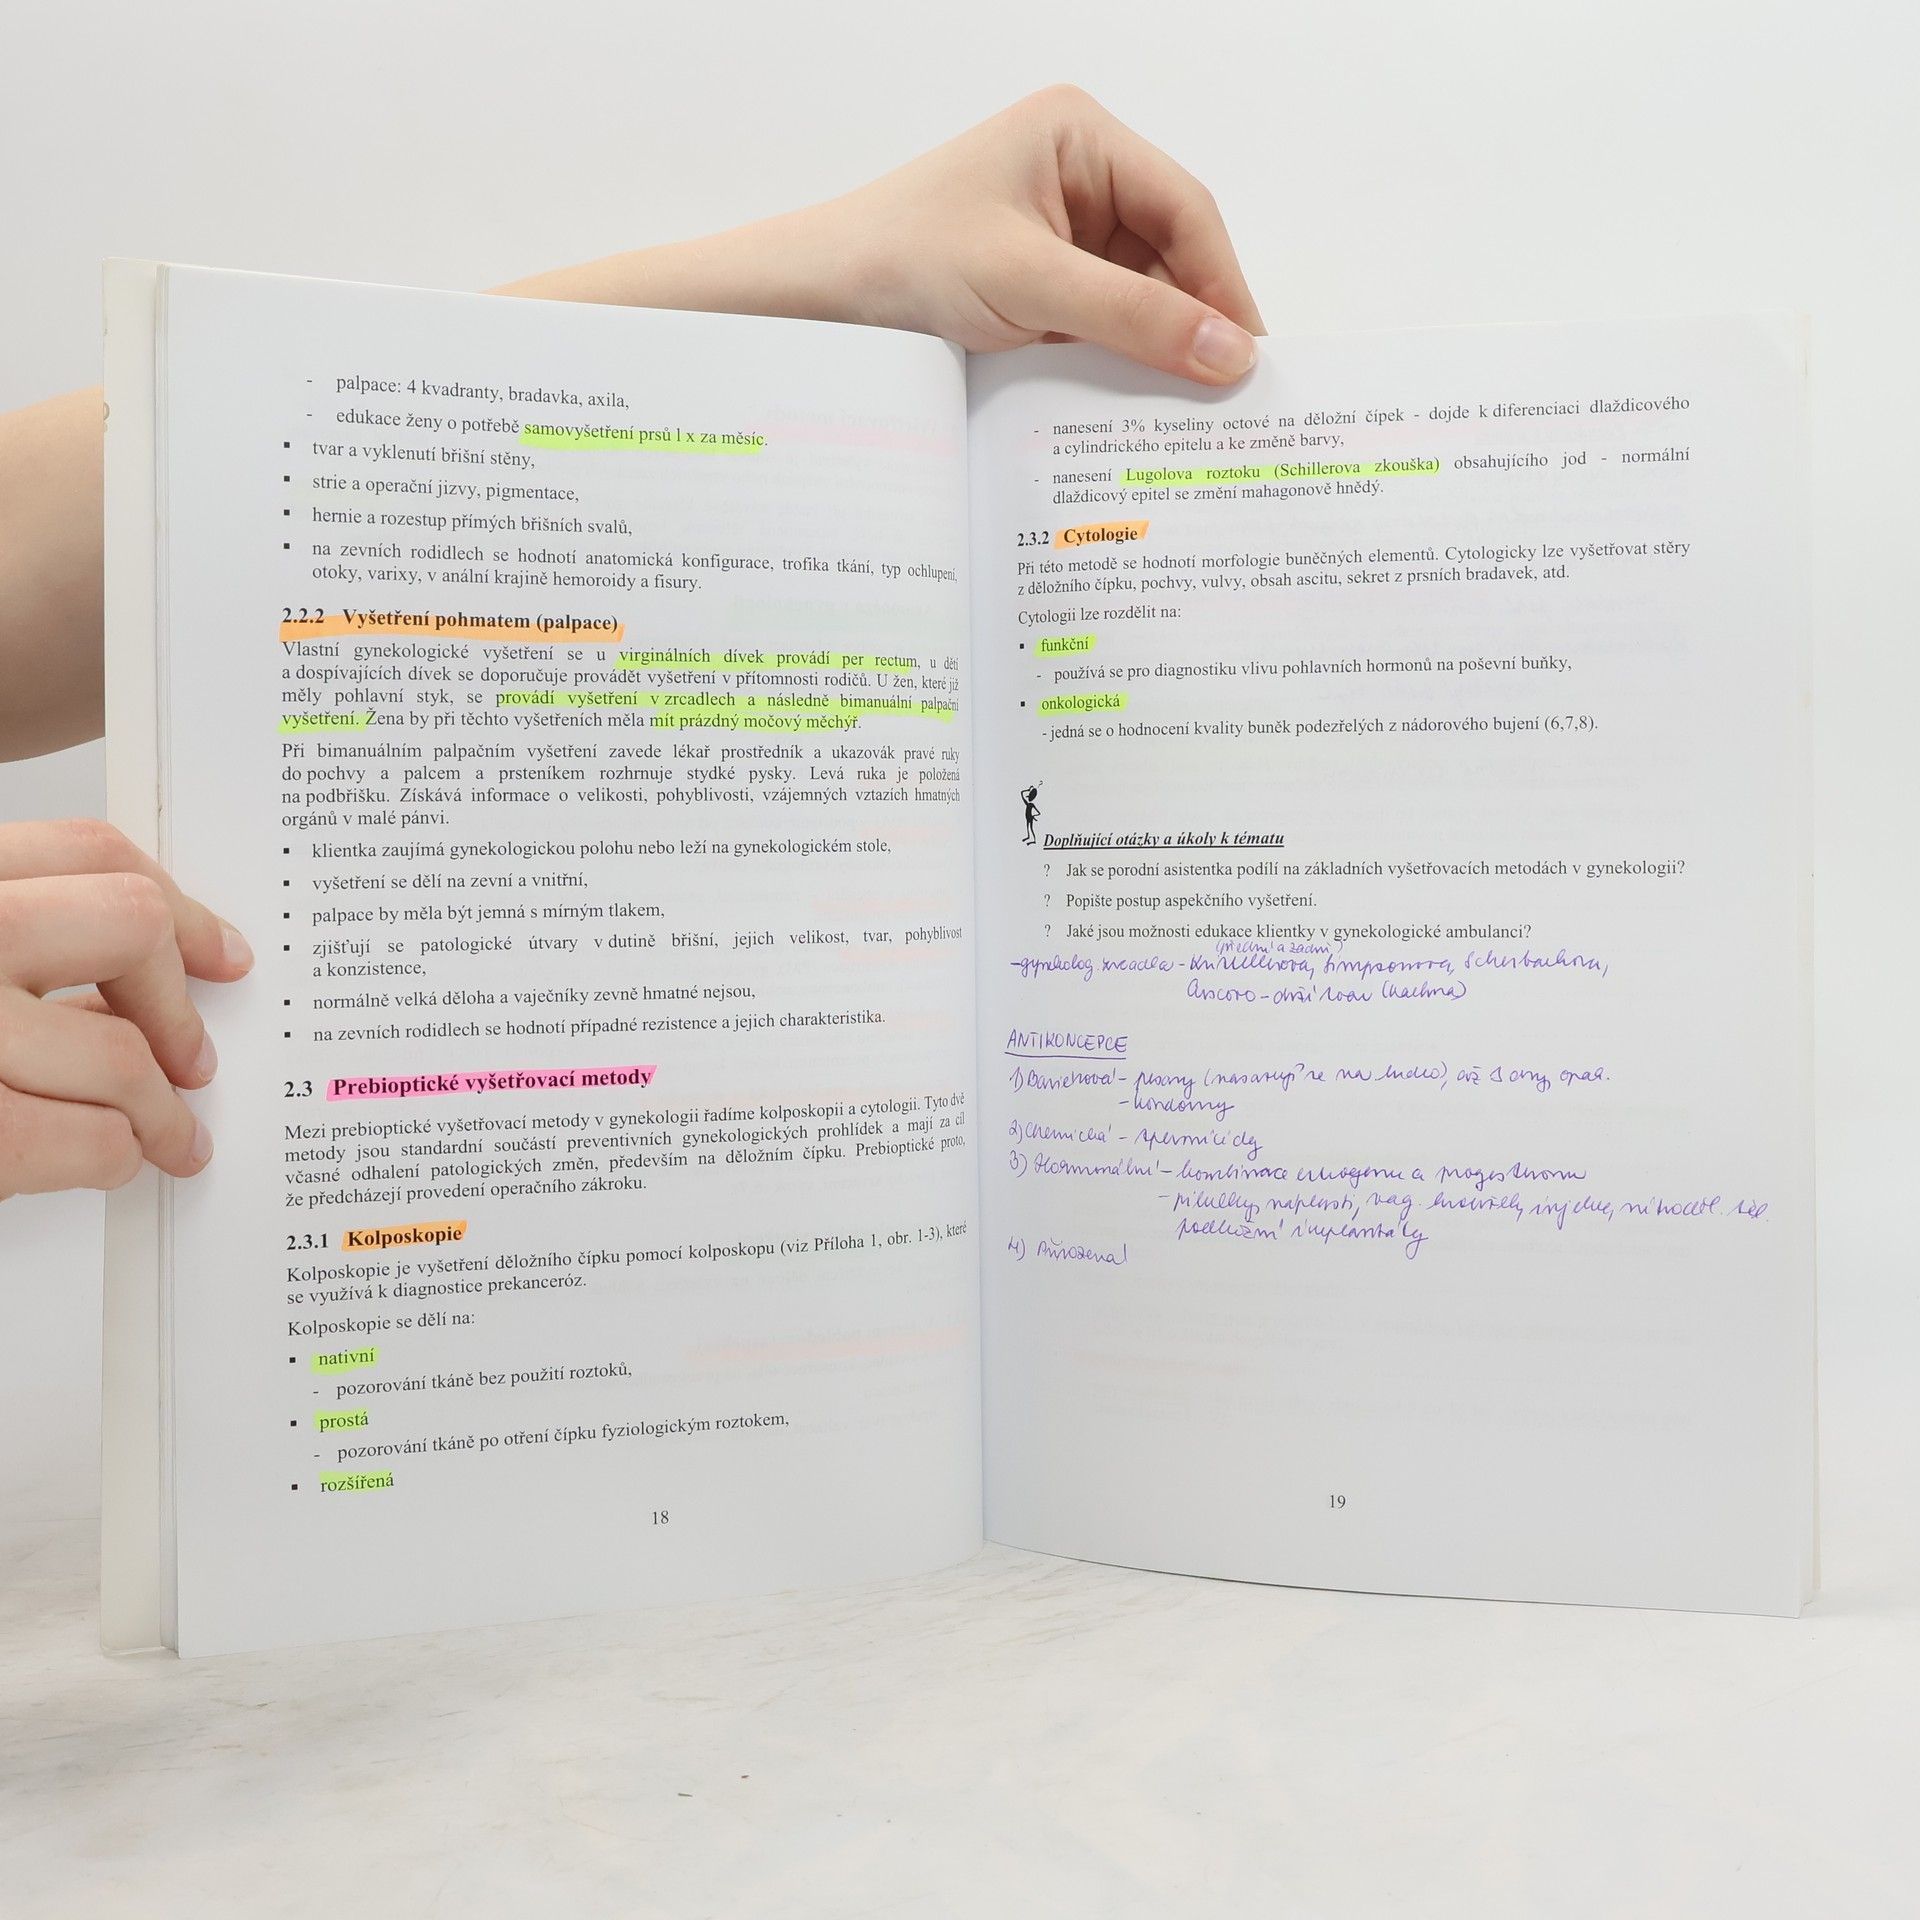 - palpace: 4 kvadranty, bradavka, axila,
- edukace ženy o potřebě samovyšetření prsů 1 x za měsíc.
▪ tvar a vyklenutí břišní stěny,
▪ strie a operační jizvy, pigmentace,
▪ hernie a rozestup přímých břišních svalů,
▪ na zevních rodidlech se hodnotí anatomická konfigurace, trofika tkání, typ ochlupení,
otoky, varixy, v anální krajině hemoroidy a fisury.
2.2.2 Vyšetření pohmatem (palpace)
Vlastní gynekologické vyšetření se u virginálních dívek provádí per rectum, u dětí
a dospívajících dívek se doporučuje provádět vyšetření v přítomnosti rodičů. U žen, které již
měly pohlavní styk, se provádí vyšetření v zrcadlech a následně bimanuální palpační
vyšetření. Žena by při těchto vyšetřeních měla mít prázdný močový měchýř.
Při bimanuálním palpačním vyšetření zavede lékař prostředník a ukazovák pravé ruky
do pochvy a palcem a prsteníkem rozhrnuje stydké pysky. Levá ruka je položená
na podbřišku. Získává informace o velikosti, pohyblivosti, vzájemných vztazích hmatných
orgánů v malé pánvi.
▪ klientka zaujímá gynekologickou polohu nebo leží na gynekologickém stole,
▪ vyšetření se dělí na zevní a vnitřní,
▪ palpace by měla být jemná s mírným tlakem,
▪ zjišťují se patologické útvary v dutině břišní, jejich velikost, tvar, pohyblivost
a konzistence,
▪ normálně velká děloha a vaječníky zevně hmatné nejsou,
▪ na zevních rodidlech se hodnotí případné rezistence a jejich charakteristika.
2.3 Prebioptické vyšetřovací metody
Mezi prebioptické vyšetřovací metody v gynekologii řadíme kolposkopii a cytologii. Tyto dvě
metody jsou standardní součástí preventivních gynekologických prohlídek a mají za cíl
včasné odhalení patologických změn, především na děložním čípku. Prebioptické proto,
že předcházejí provedení operačního zákroku.
2.3.1 Kolposkopie
Kolposkopie je vyšetření děložního čípku pomocí kolposkopu (viz Příloha 1, obr. 1-3), které
se využívá k diagnostice prekanceróz.
Kolposkopie se dělí na:
▪ nativní
- pozorování tkáně bez použití roztoků,
▪ prostá
- pozorování tkáně po otření čípku fyziologickým roztokem,
▪ rozšířená
18
- nanesení 3% kyseliny octové na děložní čípek - dojde k diferenciaci dlaždicového
a cylindrického epitelu a ke změně barvy,
- nanesení Lugolova roztoku (Schillerova zkouška) obsahujícího jod - normální
dlaždicový epitel se změní mahagonově hnědý.
2.3.2 Cytologie
Při této metodě se hodnotí morfologie buněčných elementů. Cytologicky lze vyšetřovat stěry
z děložního čípku, pochvy, vulvy, obsah ascitu, sekret z prsních bradavek, atd.
Cytologii lze rozdělit na:
▪ funkční
- používá se pro diagnostiku vlivu pohlavních hormonů na poševní buňky,
▪ onkologická
- jedná se o hodnocení kvality buněk podezřelých z nádorového bujení (6,7,8).
Doplňující otázky a úkoly k tématu
? Jak se porodní asistentka podílí na základních vyšetřovacích metodách v gynekologii?
? Popište postup aspekčního vyšetření.
? Jaké jsou možnosti edukace klientky v gynekologické ambulanci?
(přední a zadní)
-gynekolog. zrcadla - Simpsonova, Scherbachova,
(kachna)
ANTIKONCEPCE
1) Bariérová - pesary
- kondomy
2) Chemická - spermicidy
3) Hormonální - kombinace estrogenu a progesteronu
- pilulky, náplasti, vag. kroužky, injekce, nitroděl. těl.
podkožní implantáty
4) Přirozená
19